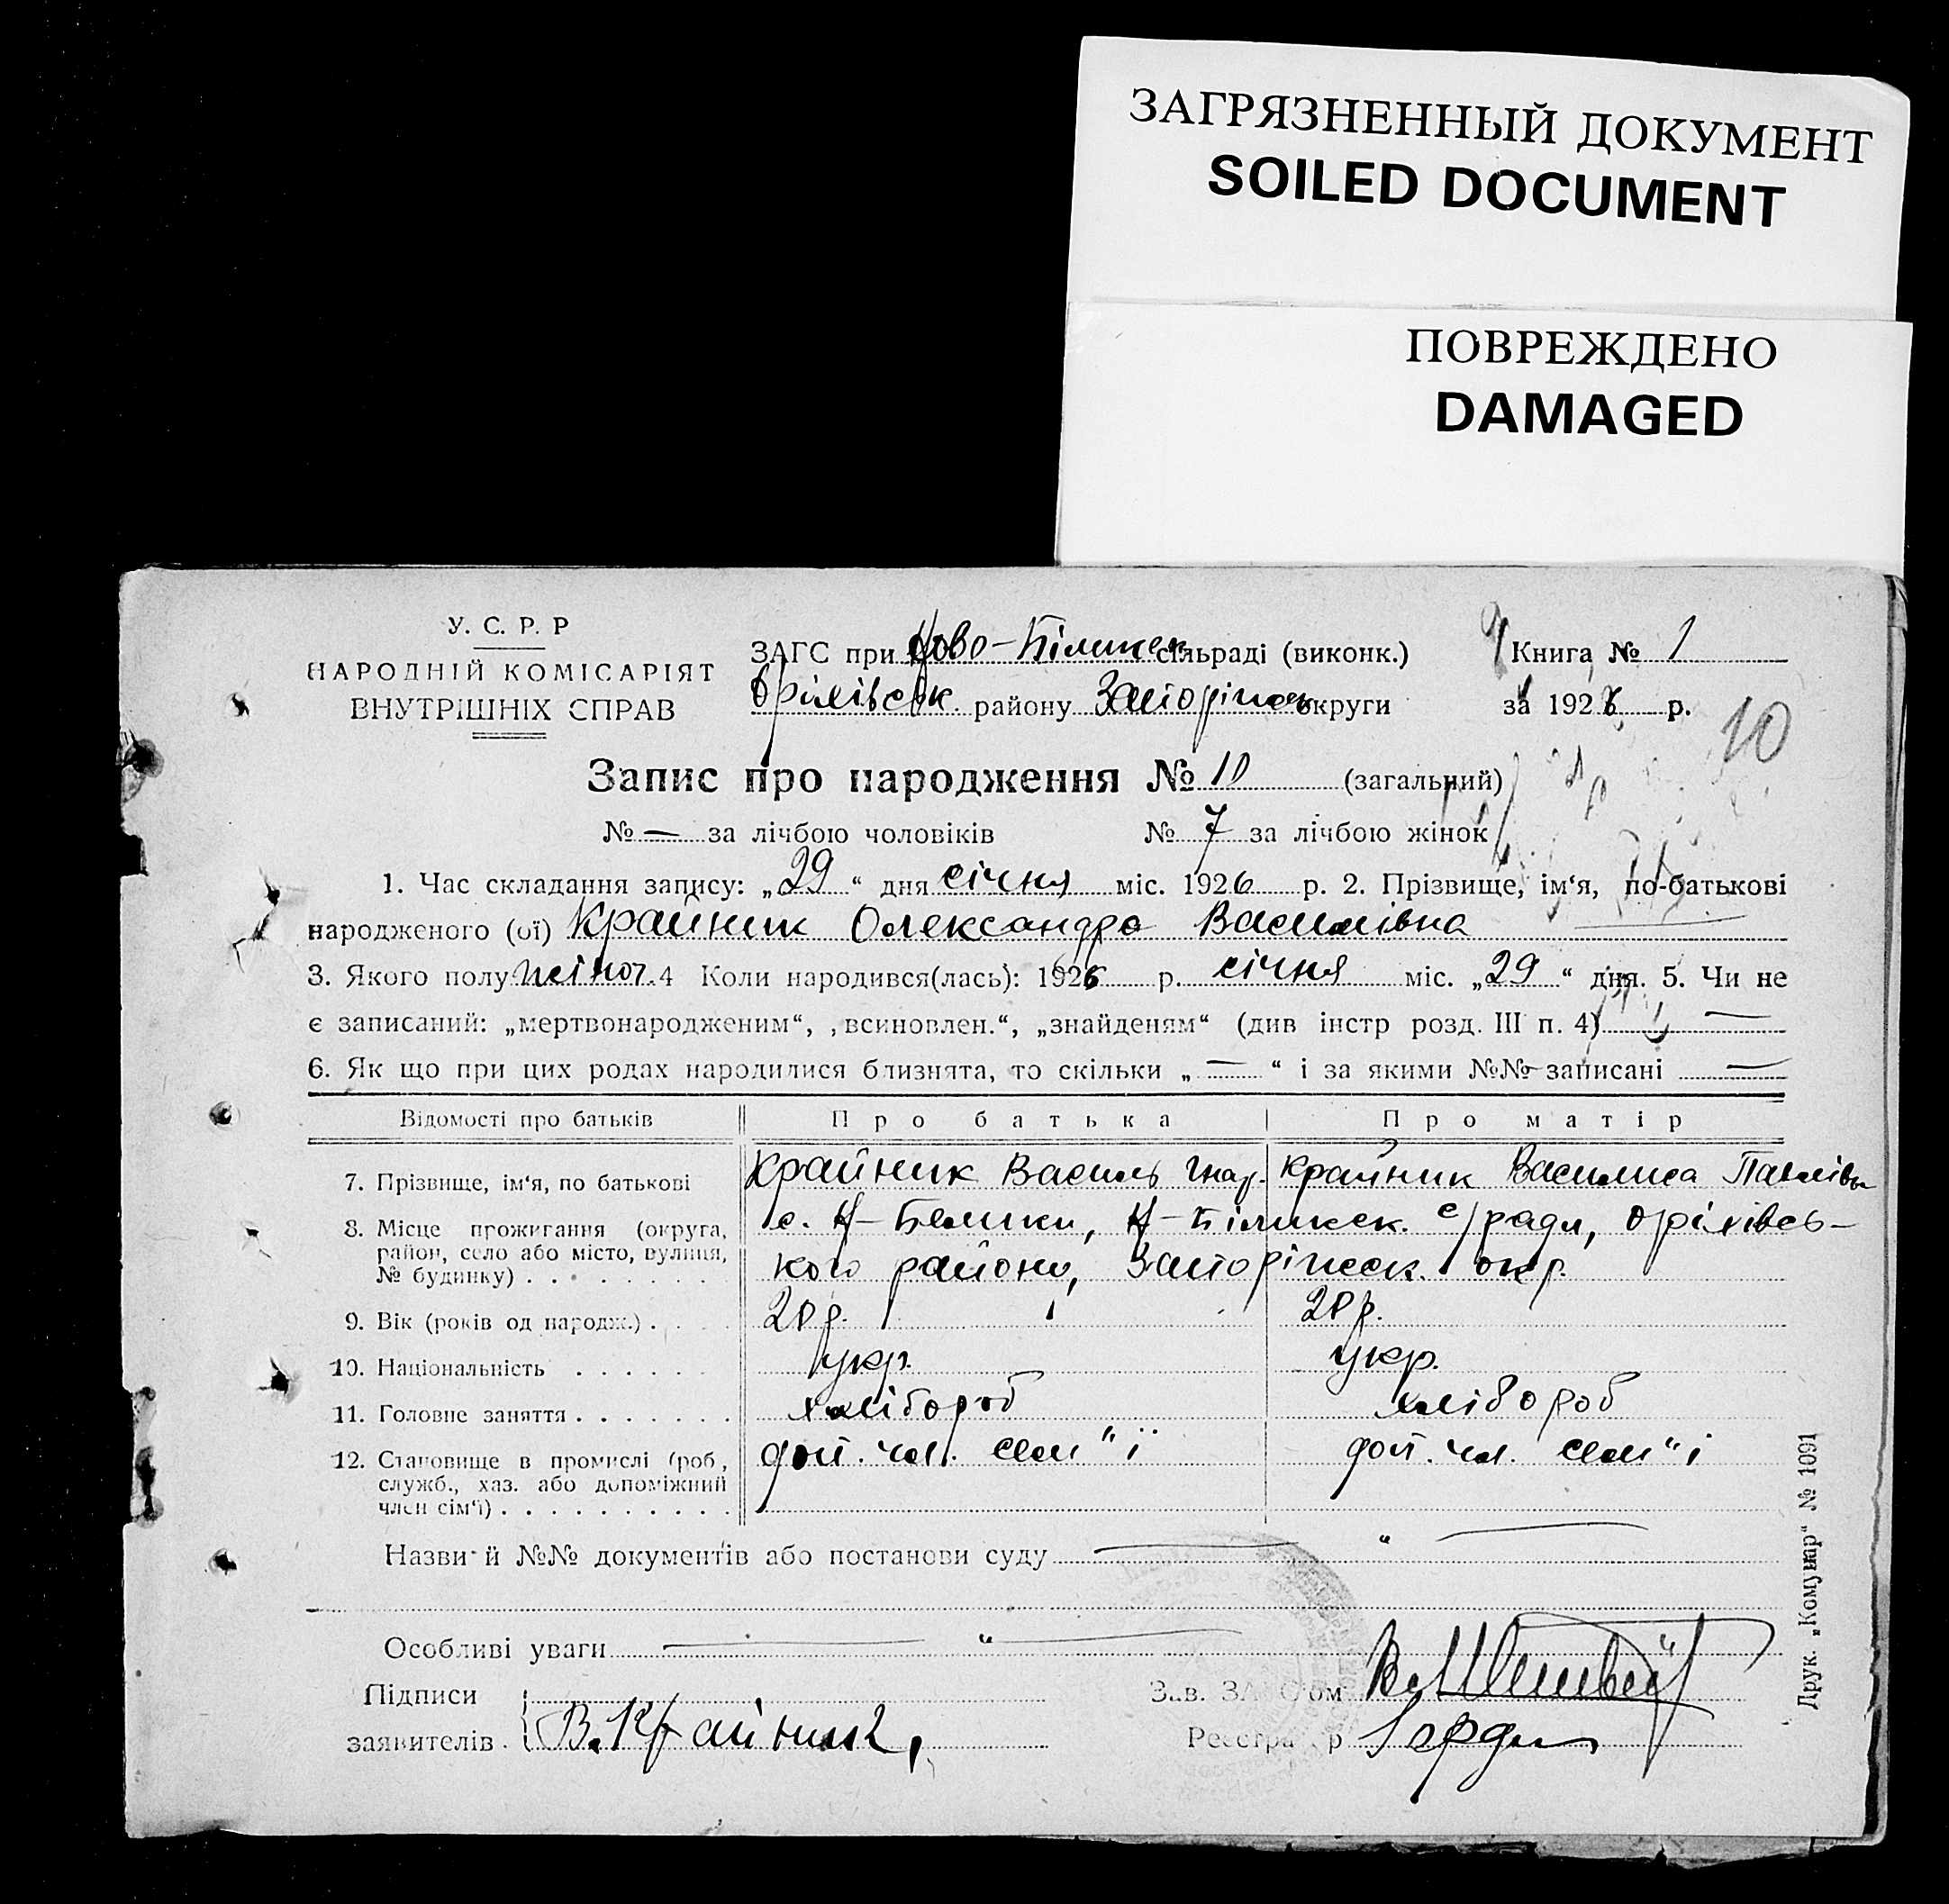 ЗАГРЯЗНЕННЫЙ ДОКУМЕНТ
SOILED DOCUMENT
ПОВРЕЖДЕНО
DAMAGED
У. С. Р. Р
НАРОДНІЙ КОМІСАРІЯТ
ВНУТРІШНІХ СПРАВ
ЗАГС при Ново-Білик сільраді (виконк.)
Оріхівськ. району Запоріжськ округи
Книга № 1
за 1926 р.
10
Запис про народження № 10 (загальний)
№ — за лічбою чоловіків № 7 за лічбою жінок
1. Час складання запису: „29“ дня січня міс. 1926 р. 2. Прізвище, ім‘я, по-батькові
народженого (ої) Крайник Олександра Василівна
3. Якого полу жіноч. 4 Коли народився(лась): 1926 р. січня міс. „29“ дня. 5. Чи не
є записаний: „мертвонародженим“, „всиновлен.“, „знайденям“ (див інстр розд. III п. 4) —
6. Як що при цих родах народилися близнята, то скільки „—“ і за якими №№ записані —
Відомості про батьків Про батька Про матір
7. Прізвище, ім‘я, по батькові Крайник Василь Гнат. Крайник Василиса Павлівн
8. Місце прожигання (округа, район, село або місто, вулиця, № будинку) с. Н-Білики, Н-Біликск. с/ради, Оріхівсь-
кого району, Запоріжск. окр.
9. Вік (років од народж.) 20 р. 20 р.
10. Національність укр. укр.
11. Головне заняття хлібороб хлібороб
12. Становище в промислі (роб, служб., хаз. або допоміжний член сім‘ї) доп. чл. сем"ї доп. чл. сем"і
Назви й №№ документів або постанови суду — " —
Особливі уваги — " —
Підписи
заявителів В. Крайник
Зав. ЗАГС‘ом
Реєстратор
Друк. „Комунар“ № 1091